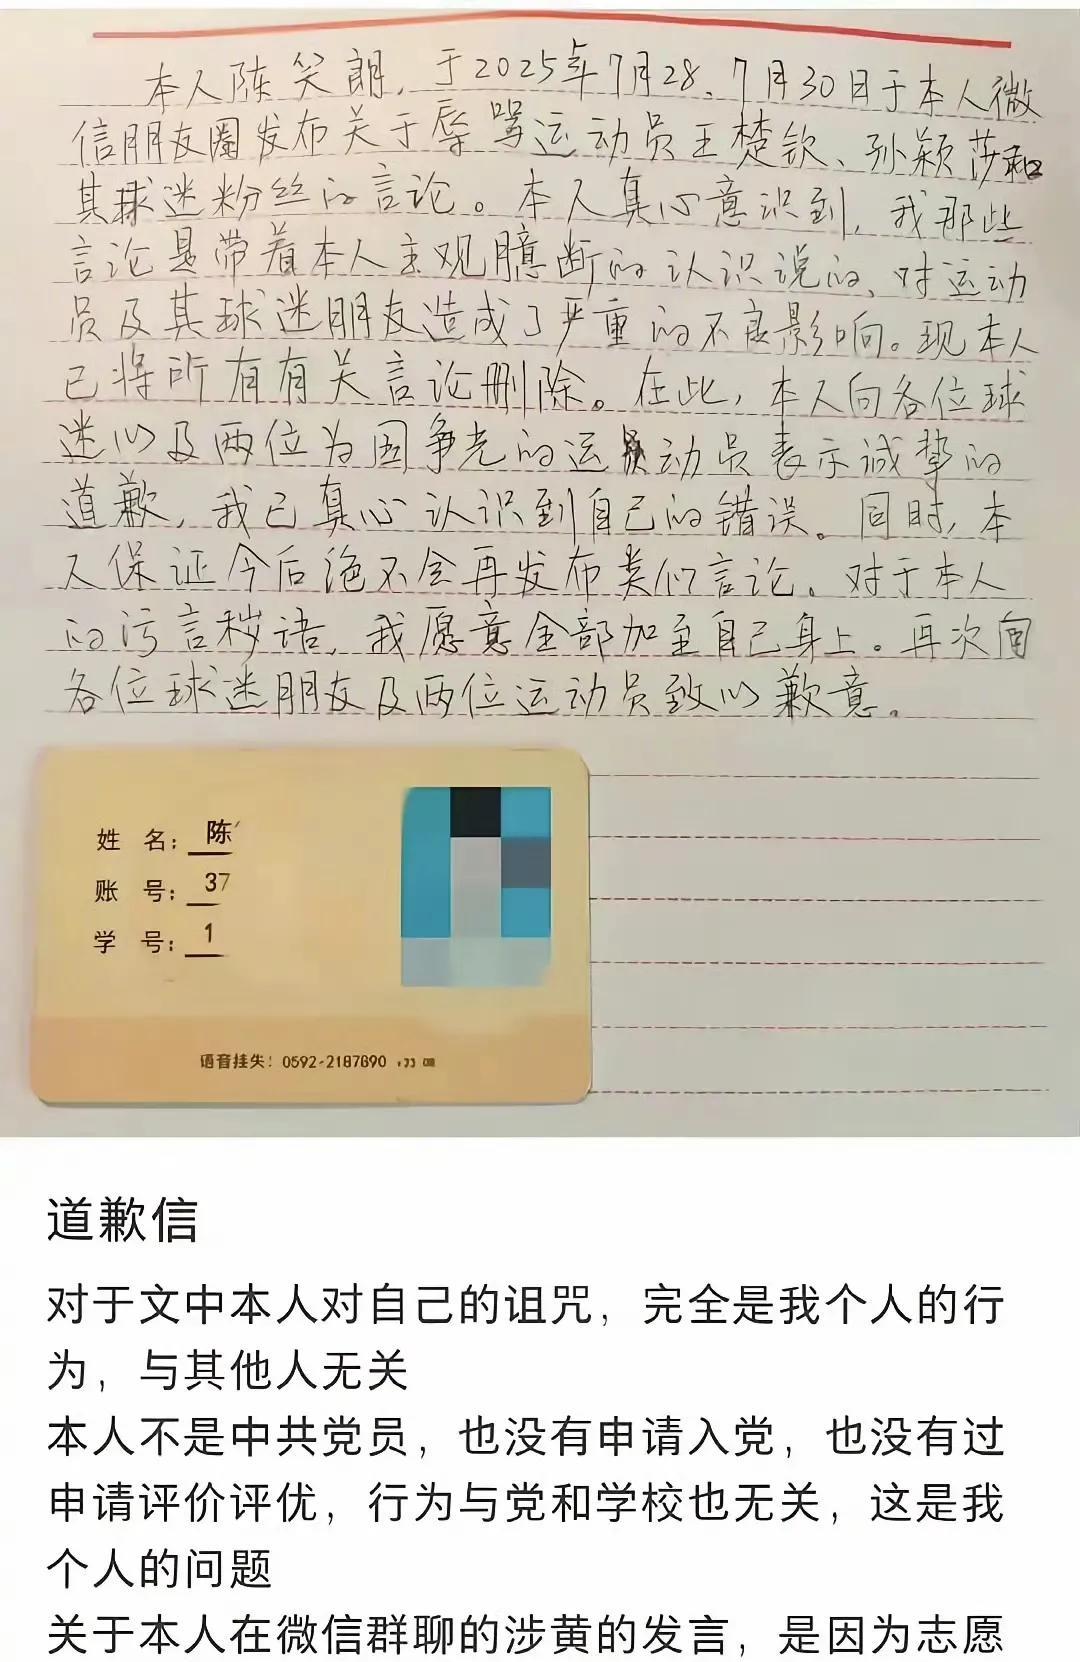 本人陈笑朗,于2025年7月28、7月30日于本人微
信朋友圈发布关于辱骂运动员王楚钦、孙颖莎和
其球迷粉丝的言论。本人真心意识到,我那些
言论是带着本人主观臆断的认识说的,对运动
员及其球迷朋友造成了严重的不良影响。现本人
已将所有有关言论删除。在此,本人向各位球
迷以及两位为国争光的运动员表示诚挚的
道歉,我已真心认识到自己的错误。同时,本
人保证今后绝不会再发布类似言论。对于本人
的污言秽语,我愿意全部加至自己身上。再次向
各位球迷朋友及两位运动员致以歉意。
姓 名:陈
账 号:37
学 号:1
语音挂失:0592-2187690
道歉信
对于文中本人对自己的诅咒,完全是我个人的行
为,与其他人无关
本人不是中共党员,也没有申请入党,也没有过
申请评价评优,行为与党和学校也无关,这是我
个人的问题
关于本人在微信群聊的涉黄的发言,是因为志愿